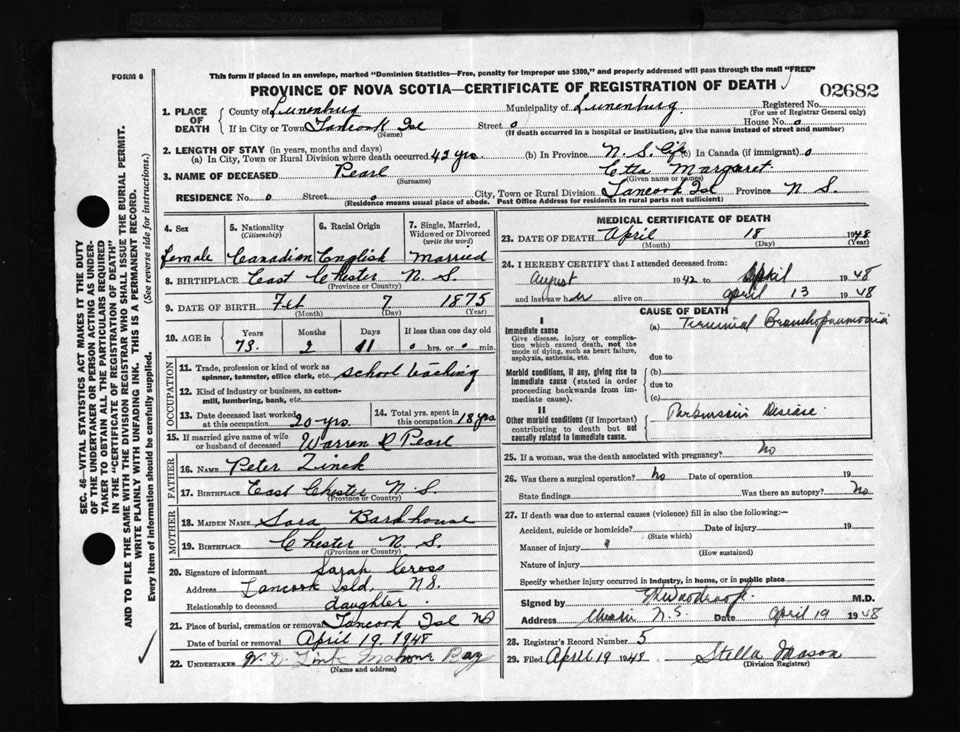 FORM 6
This form if placed in an envelope, marked "Dominion Statistics—Free, penalty for improper use $300," and properly addressed will pass through the mail "FREE"
PROVINCE OF NOVA SCOTIA—CERTIFICATE OF REGISTRATION OF DEATH 02682
1. PLACE OF DEATH
County of Lunenburg Municipality of Lunenburg Registered No.
(For use of Registrar General only)
If in City or Town Tancook Isl Street 0 House No. 0
(Name) (If death occurred in a hospital or institution, give the name instead of street and number)
2. LENGTH OF STAY (in years, months and days)
(a) In City, Town or Rural Division where death occurred 42 yrs. (b) In Province N. S. Life (c) In Canada (if immigrant) 0
3. NAME OF DECEASED Pearl Etta Margaret
(Surname) (Given name or names)
RESIDENCE No. 0 Street 0 City, Town or Rural Division Tancook Isl Province N. S.
(Residence means usual place of abode. Post Office Address for residents in rural parts not sufficient)
4. Sex 5. Nationality 6. Racial Origin 7. Single, Married, Widowed or Divorced
(Citizenship) (write the word)
female Canadian English Married
8. BIRTHPLACE East Chester N. S.
(Province or Country)
9. DATE OF BIRTH Feb 7 1875
(Month) (Day) (Year)
10. AGE in Years Months Days If less than one day old
73. 2 11 0 hrs. or 0 min.
OCCUPATION
11. Trade, profession or kind of work as spinner, teamster, office clerk, etc. school teaching
12. Kind of industry or business, as cotton-mill, lumbering, bank, etc.
13. Date deceased last worked at this occupation 20 yrs. 14. Total yrs. spent in this occupation 18 yrs
15. If married give name of wife or husband of deceased Warren R Pearl
FATHER
16. NAME Peter Zinck
17. BIRTHPLACE East Chester N. S.
(Province or Country)
MOTHER
18. MAIDEN NAME Sara Barkhouse
19. BIRTHPLACE Chester N. S.
(Province or Country)
20. Signature of informant Sarah Cross
Address Tancook Isld, N.S.
Relationship to deceased daughter
21. Place of burial, cremation or removal Tancook Isl NS
Date of burial or removal April 19. 1948
22. UNDERTAKER Mahone Bay
(Name and address)
MEDICAL CERTIFICATE OF DEATH
23. DATE OF DEATH April 18 1948
(Month) (Day) (Year)
24. I HEREBY CERTIFY that I attended deceased from:
August 1942 to April 1948
and last saw her alive on April 13 1948
CAUSE OF DEATH
I
Immediate cause (a) Terminal Bronchopneumonia
Give disease, injury or complication which caused death, not the mode of dying, such as heart failure, asphyxia, asthenia, etc.
due to
Morbid conditions, if any, giving rise to immediate cause (stated in order proceeding backwards from immediate cause).
(b)
due to
(c)
II
Other morbid conditions (if important) contributing to death but not causally related to immediate cause.
Parkinson's Disease.
25. If a woman, was the death associated with pregnancy? No
26. Was there a surgical operation? No Date of operation 19
State findings Was there an autopsy? No
27. If death was due to external causes (violence) fill in also the following:—
Accident, suicide or homicide? Date of injury 19
(State which)
Manner of injury
(How sustained)
Nature of injury
Specify whether injury occurred in industry, in home, or in public place
Signed by M.D.
Address N. S. Date April 19 1948
28. Registrar's Record Number 5
29. Filed April 19 1948 Stella Mason
(Division Registrar)
SEC. 46—VITAL STATISTICS ACT MAKES IT THE DUTY
OF THE UNDERTAKER OR PERSON ACTING AS UNDER-
TAKER TO OBTAIN ALL THE PARTICULARS REQUIRED
IN THE "CERTIFICATE OF REGISTRATION OF DEATH"
AND TO FILE THE SAME WITH THE DIVISION REGISTRAR WHO SHALL ISSUE THE BURIAL PERMIT.
WRITE PLAINLY WITH UNFADING INK. THIS IS A PERMANENT RECORD.
Every item of information should be carefully supplied. (See reverse side for instructions.)